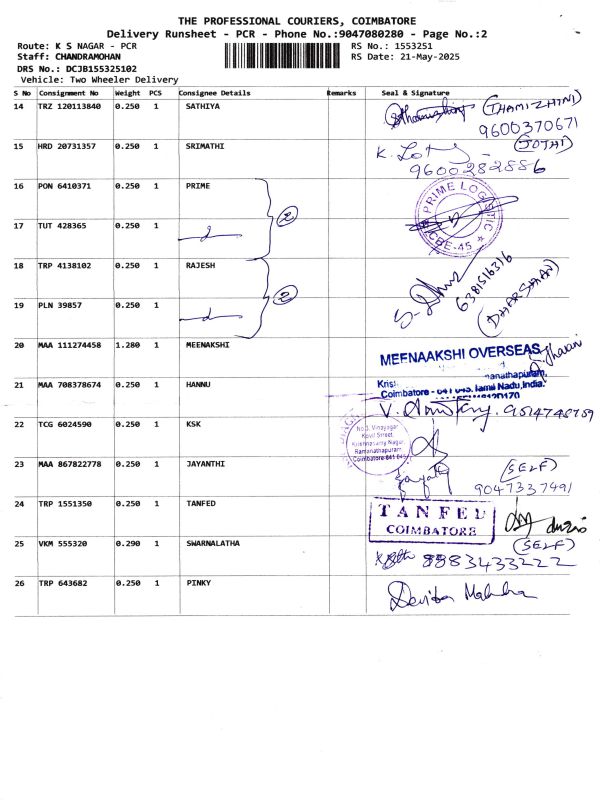 THE PROFESSIONAL COURIERS, COIMBATORE
Delivery Runsheet - PCR - Phone No.:9047080280 - Page No.:2
Route: K S NAGAR - PCR
RS No.: 1553251
Staff: CHANDRAMOHAN
RS Date: 21-May-2025
DRS No.: DCJB155325102
Vehicle: Two Wheeler Delivery
S No Consignment No Weight PCS Consignee Details Remarks Seal & Signature
14 TRZ 120113840 0.250 1 SATHIYA
(THAMIZHINI)
9600370671
15 HRD 20731357 0.250 1 SRIMATHI
(JOTHI)
9600282886
16 PON 6410371 0.250 1 PRIME
2
PRIME LOGISTIC
CBE-45
17 TUT 428365 0.250 1
18 TRP 4138102 0.250 1 RAJESH
2
6381516316
(DHARSHAN)
19 PLN 39857 0.250 1
20 MAA 111274458 1.280 1 MEENAKSHI
MEENAAKSHI OVERSEAS
manathapuram,
Coimbatore - 641 045. Tamil Nadu, India.
21 MAA 708378674 0.250 1 HANNU
9514748759
22 TCG 6024590 0.250 1 KSK
No.3, Vinayagar
Kovil Street,
Krishnasamy Nagar,
Ramanathapuram,
Coimbatore-641 045
23 MAA 867822778 0.250 1 JAYANTHI
(SELF)
9047337491
24 TRP 1551350 0.250 1 TANFED
TANFED
COIMBATORE
25 VKM 555320 0.290 1 SWARNALATHA
(SELF)
8883433222
26 TRP 643682 0.250 1 PINKY